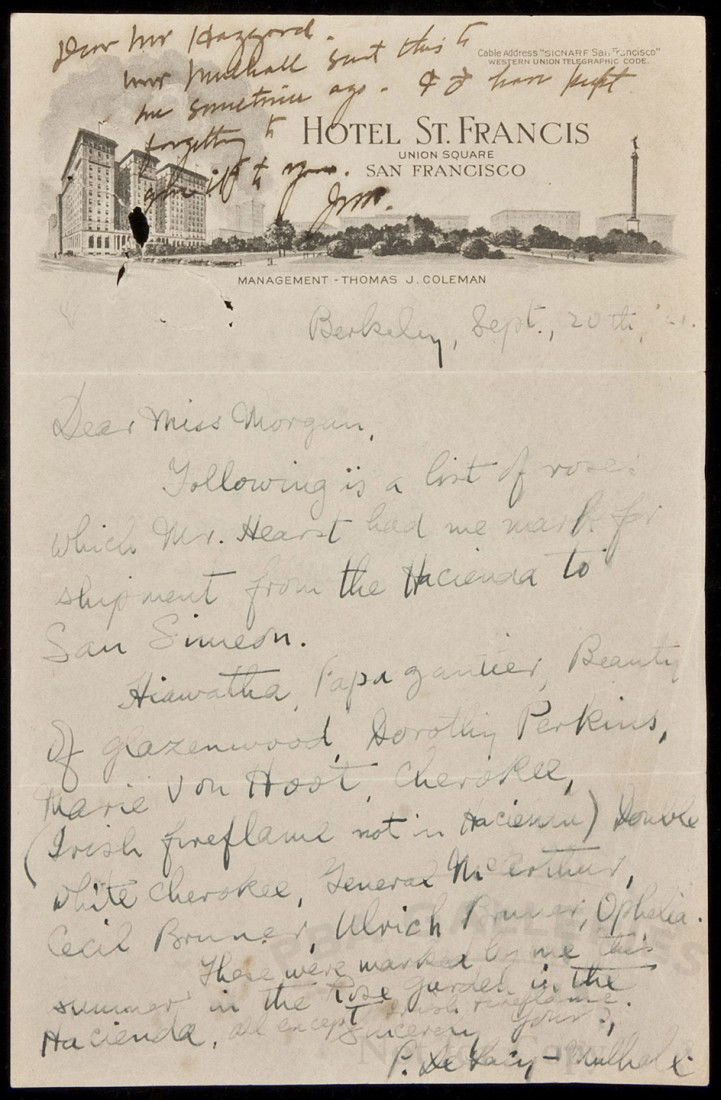 Dear Mr Hazzard.
Cable Address "SIGNARF San Francisco"
WESTERN UNION TELEGRAPHIC CODE.
Mr Mulhall sent this to
me sometime ago. & I have kept
forgetting to
give it to you.
JM.
HOTEL ST. FRANCIS
UNION SQUARE
SAN FRANCISCO
MANAGEMENT - THOMAS J. COLEMAN
Berkeley, Sept., 20th,
Dear Miss Morgan,
Following is a list of roses
which Mr. Hearst had me mark for
shipment from the Hacienda to
San Simeon.
Hiawatha, Papa gautier, Beauty
Of glazenwood, Dorothy Perkins,
Marie Von Hoot, Cherokee,
(Irish fireflame not in Hacienda) Double
white Cherokee, General McArthur,
Cecil Bruner, Ulrich Bruner, Ophelia.
These were marked by me this
summer in the Rose garden in the
Hacienda, all except Irish fireflame.
Sincerely Yours,
P. De Lacy-Mulhall